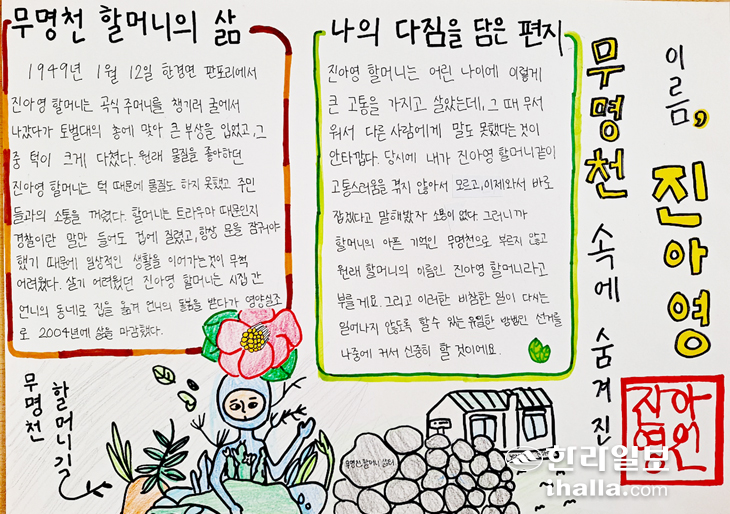 무명천 할머니의 삶
1949년 1월 12일 한경면 판포리에서
진아영 할머니는 곡식 주머니를 챙기러 굴에서
나갔다가 토벌대의 총에 맞아 큰 부상을 입었고, 그
중 턱이 크게 다쳤다. 원래 물질을 좋아하던
진아영 할머니는 턱 때문에 물질도 하지 못했고 주민
들과의 소통을 꺼렸다. 할머니는 트라우마 때문인지
경찰이란 말만 들어도 겁에 질렸고, 항상 문을 잠궈야
했기 때문에 일상적인 생활을 이어가는것이 무척
어려웠다. 살기 어려웠던 진아영 할머니는 시집 간
언니의 동네로 집을 옮겨 언니의 돌봄을 받다가 영양실조
로 2004년에 삶을 마감했다.
나의 다짐을 담은 편지
진아영 할머니는 어린 나이에 이렇게
큰 고통을 가지고 살았는데, 그 때 무서
워서 다른 사람에게 말도 못했다는것이
안타깝다. 당시에 내가 진아영 할머니같이
고통스러움을 겪지 않아서 모르고, 이제와서 바로
잡겠다고 말해봤자 소용이 없다. 그러니까
할머니의 아픈 기억인 무명천으로 부르지 않고
원래 할머니의 이름인 진아영 할머니라고
부를게요. 그리고 이러한 비참한 일이 다시는
일어나지 않도록 할 수 있는 유일한 방법인 선거를
나중에 커서 신중히 할 것이에요.
무명천 속에 숨겨진
이름, 진아영
무명천
할머니길
무명천 할머니 삶터
한라일보
ihalla.com